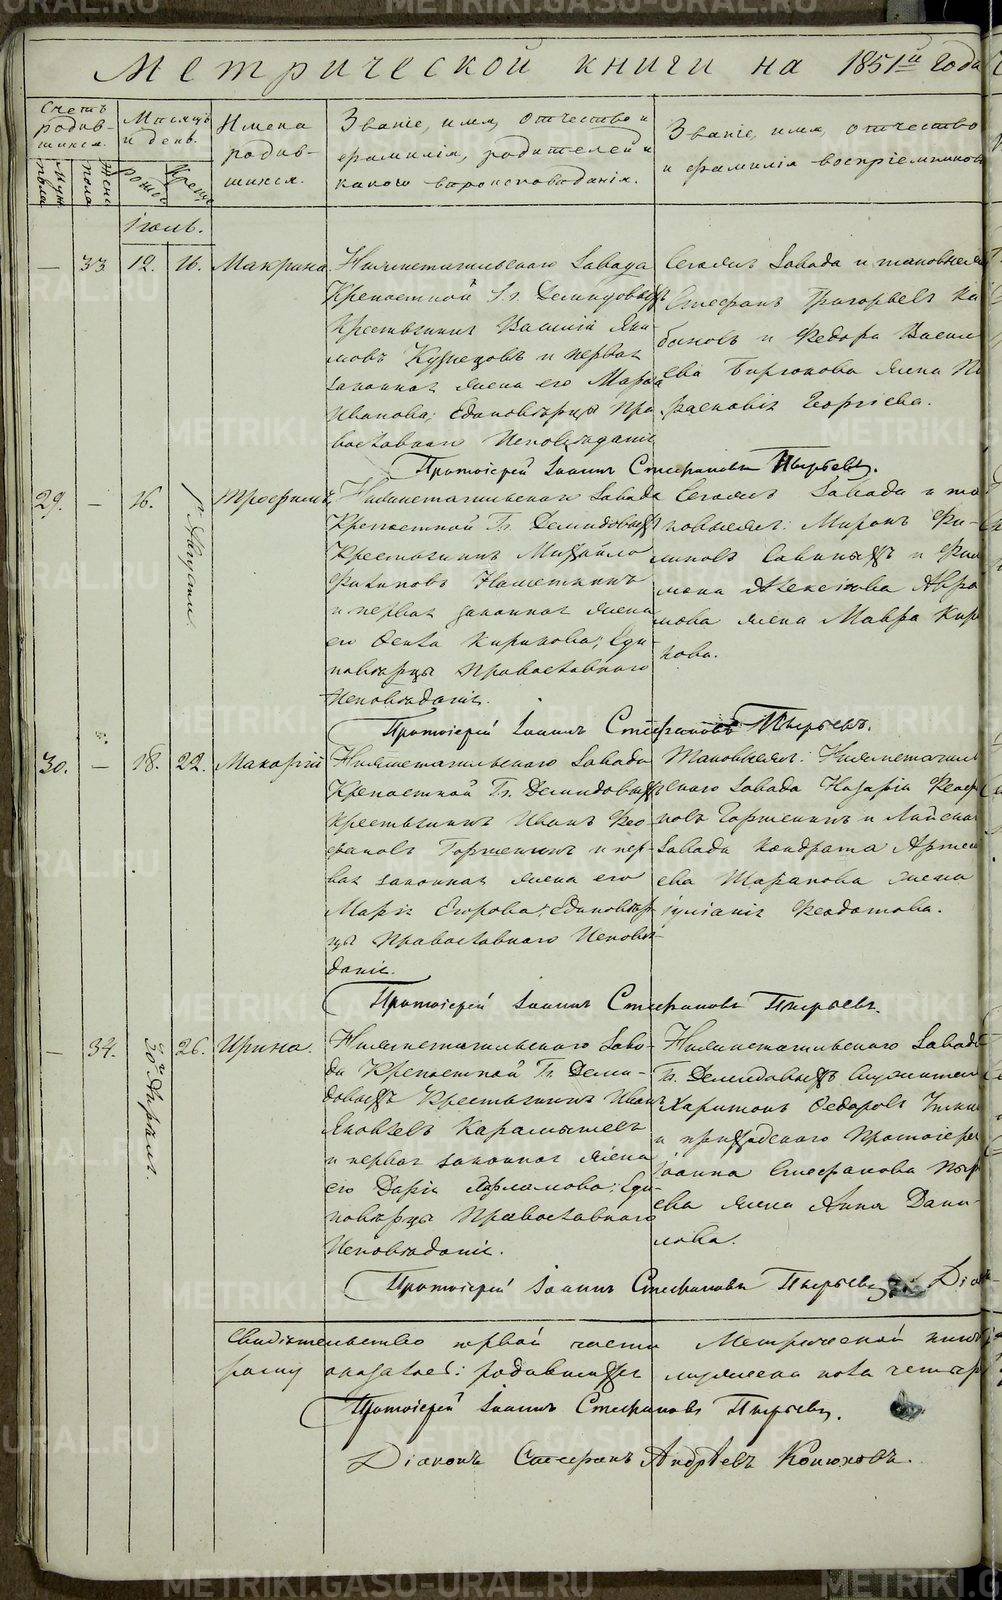 Метрической книги на 1851й года
Счетъ родившихся.
Муж. пола
Жен. пола
Месяцъ и день.
рожд.
Крещ.
Имена родившихся.
Званіе, имя, отчество и
фамилія, родителей и
какого вероисповеданія.
Званіе, имя, отчество
и фамилія воспріемников
Іюль.
— 33 12. 16. Макрина.
Нижнетагильскаго Завода
Крепостной Гг. Демидовыхъ
Крестьянинъ Василій Яки-
мовъ Кузнецовъ и первая
законная жена его Марѳа
Иванова; Единоверцы Пра-
вославнаго Исповеданія
Стефанъ Григорьевъ Ка
бановъ и Федора Василь
ева Бирюкова жена Па
расковія Георгіева.
Протоіерей Іоаннъ Стефановъ Пырьевъ.
29. — 16. 1 Августа Трофимъ.
Нижнетагильскаго Завода
Крепостной Гг. Демидовыхъ
Крестьянинъ Михайло
Филиповъ Наметкинъ
и первая законная жена
его Ѳекла Кирилова; Еди-
новерцы Православнаго
Исповеданія.
Сегожъ Завода и та
повъ Савиныхъ и Фили
мона Алексіева Авра
мова жена Мавра Кири
лова.
Протоіерей Іоаннъ Стефановъ Пырьевъ.
30. — 18. 22. Макарій
Нижнетагильскаго Завода
Крепостной Гг. Демидовыхъ
Крестьянинъ Иванъ Фео
фановъ Горшенинъ и пер-
вая законная жена его
Марія Егорова; Единовер-
цы Православнаго Испове-
данія.
скаго Завода Назарій Феоф
новъ Горшенинъ и Лайскаго
Завода Кондрата Артем
ева Шарапова жена
Іуліанія Феодотова.
Протоіерей Іоаннъ Стефановъ Пырьевъ.
— 34. 30го Апреля. 26. Ирина.
Нижнетагильскаго Заво-
да Крепостной Гг. Деми-
довыхъ Крестьянинъ Иванъ
Яковлевъ Карамышевъ
и первая законная жена
его Дарія Харламова; Еди-
новерцы Православнаго
Исповеданія.
Нижнетагильскаго Завода
Гг. Демидовыхъ Служитель
Харитонъ Федоровъ
и приходскаго Протоіерея
Іоанна Стефанова Пыр
ева жена Анна Дани-
лова.
Протоіерей Іоаннъ Стефановъ Пырьевъ. Діак
Свидетельство первой части Метрической книги
Протоіерей Іоаннъ Стефановъ Пырьевъ.
Діаконъ Стефанъ Андреевъ Конюховъ.
METRIKI.GASO-URAL.RU